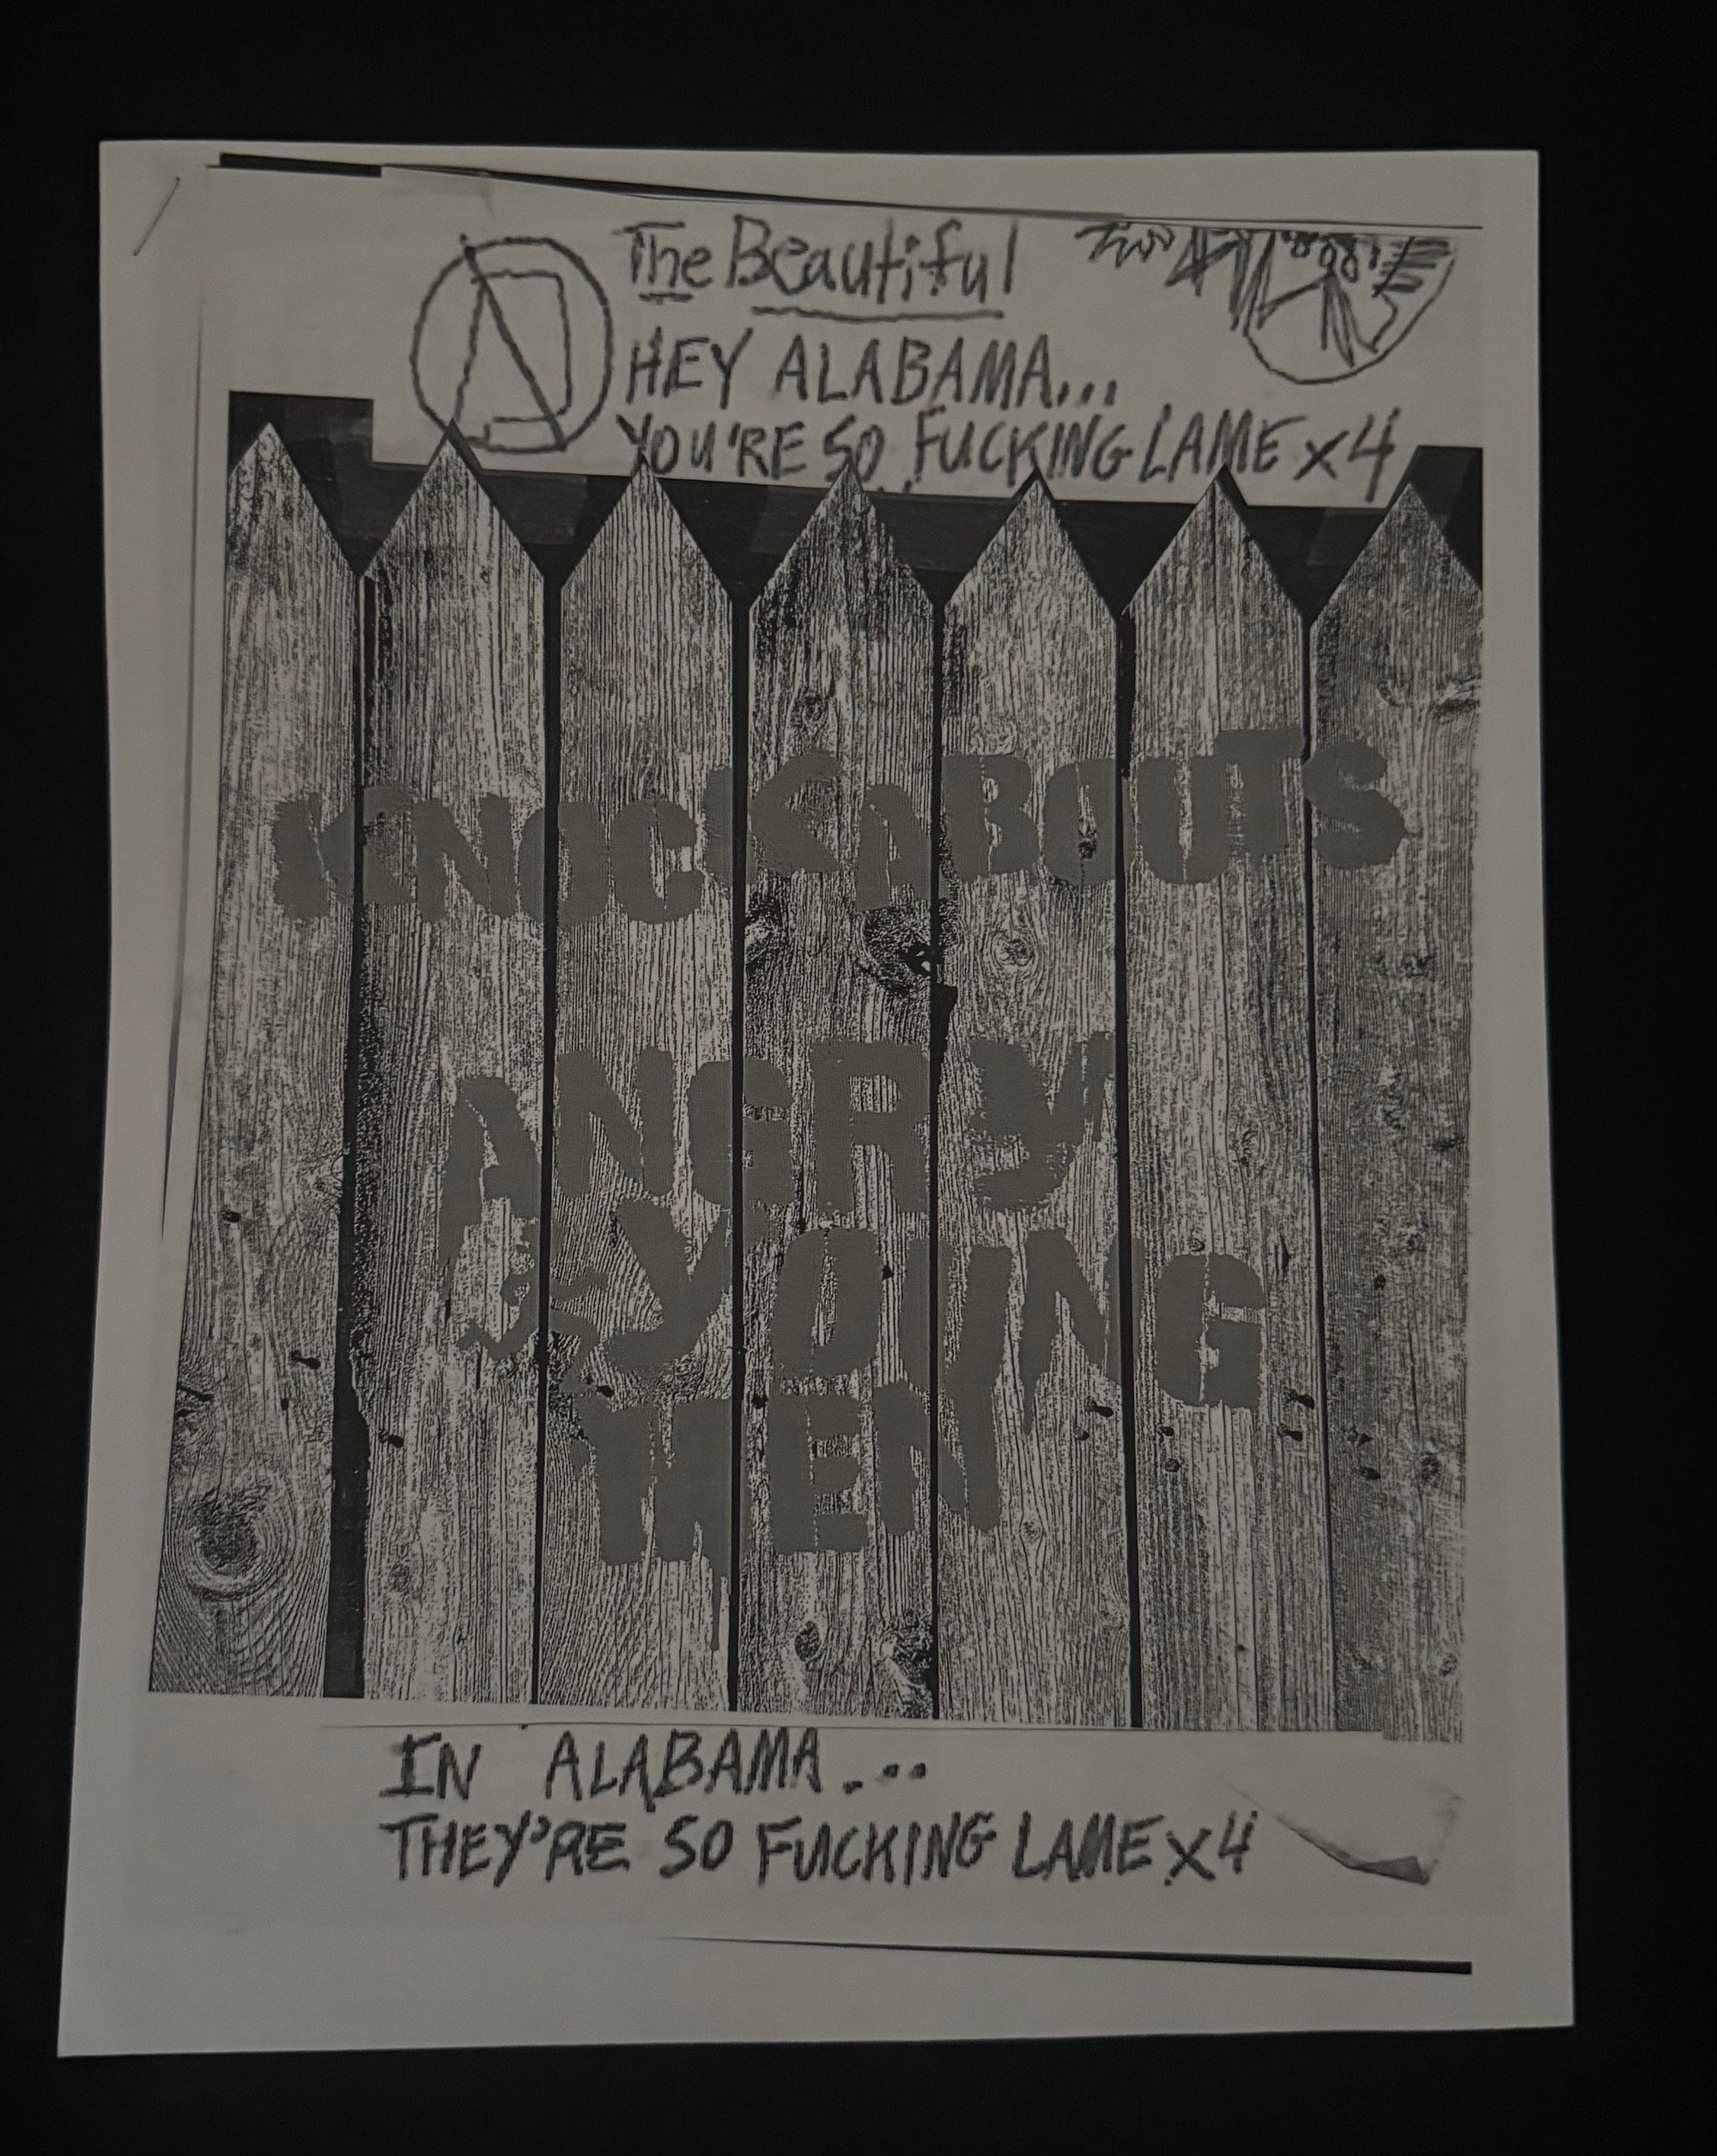 The Beautiful
HEY ALABAMA...
YOU'RE SO FUCKING LAME x4
KNOCKABOUTS
ANGRY
YOUNG
MEN
IN ALABAMA...
THEY'RE SO FUCKING LAME x4